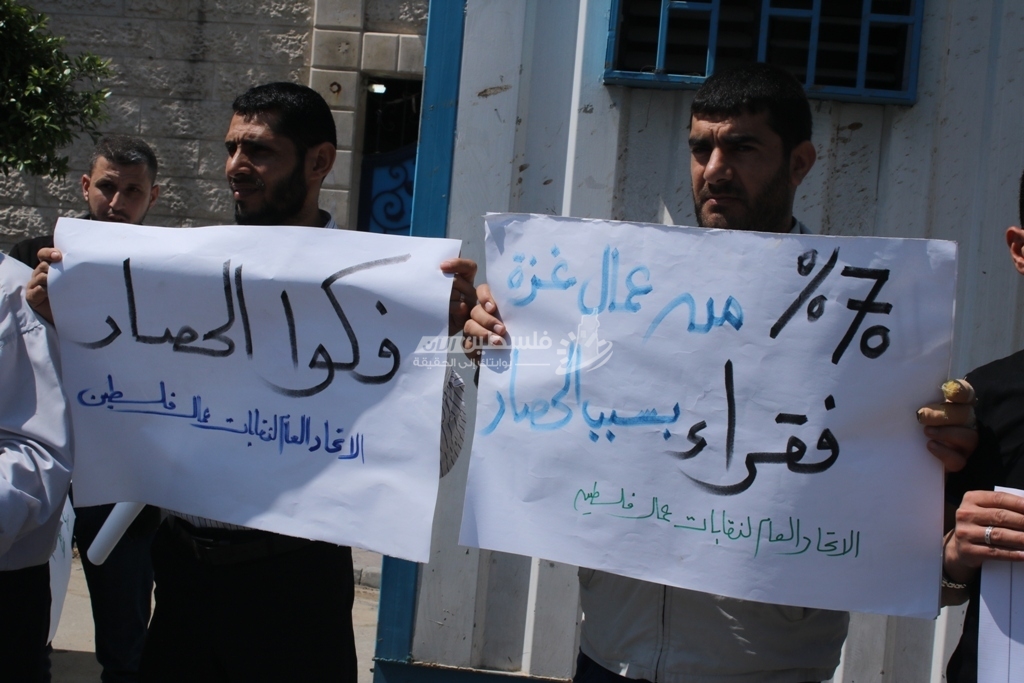 فكوا الحصار
الاتحاد العام لنقابات عمال فلسطين
7% من عمال غزة
فقراء بسبب الحصار
الاتحاد العام لنقابات عمال فلسطين
فلسطين الآن
بوابتك إلى الحقيقة